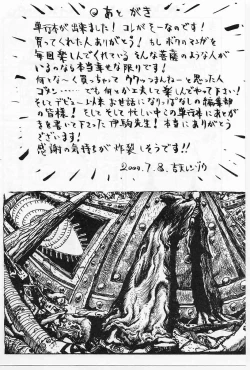 ◎あとがき
単行本が出来ました! コレがそーなのです!
買ってくれた人ありがとう! もしボクのマンガを
毎回楽しんでくれている そんな菩薩のような人が
いるのなら本当幸せな限りです!
何となーく買っちゃって 思った人
ゴメン……でも何とか工夫して楽しんでやって下さい!
そしてデビュー以来お世話になりっぱなしの編集部
の皆様! そしてそして忙しい中この単行本にあと
がきを書いて下さった 先生! 本当にありがとう
ございます!
感謝の気持ちが炸裂しそうです!!
2009.7.8.